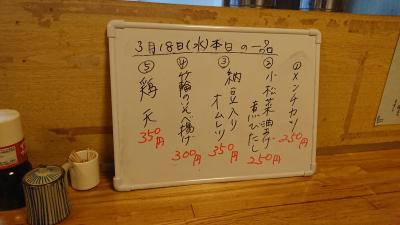 3月18日(水)本日の一品
①メンチカツ
250円
②小松菜油あげ
煮びたし
250円
③納豆入り
オムレツ
350円
④竹輪の磯辺揚げ
300円
⑤鶏天
350円